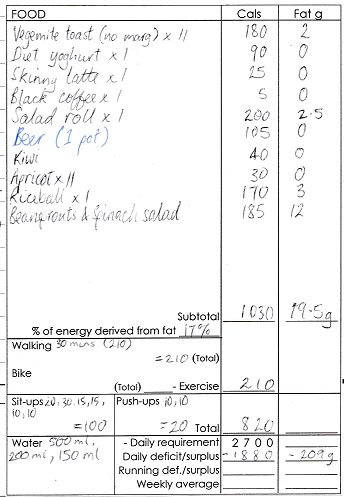 FOOD Cals Fat g
Vegemite toast (no marg) x 11 180 2
Diet yoghurt x 1 90 0
Skinny latte x 1 25 0
Black coffee x 1 5 0
Salad roll x 1 200 2.5
Beer (1 pot) 105 0
Kiwi 40 0
Apricot x 11 30 0
Riceball x 1 170 3
Beansprouts & Spinach salad 185 12
Subtotal 1030 19.5g
% of energy derived from fat 17%
Walking 30 mins (210)
= 210 (Total)
Bike
(Total) - Exercise 210
Sit-ups 20, 30, 15, 15, Push-ups 10, 10
10, 10
= 100 = 20 Total 820
Water 500 ml, - Daily requirement 2700
200 ml, 150 ml Daily deficit/surplus -1880 -209g
Running def./surplus
Weekly average